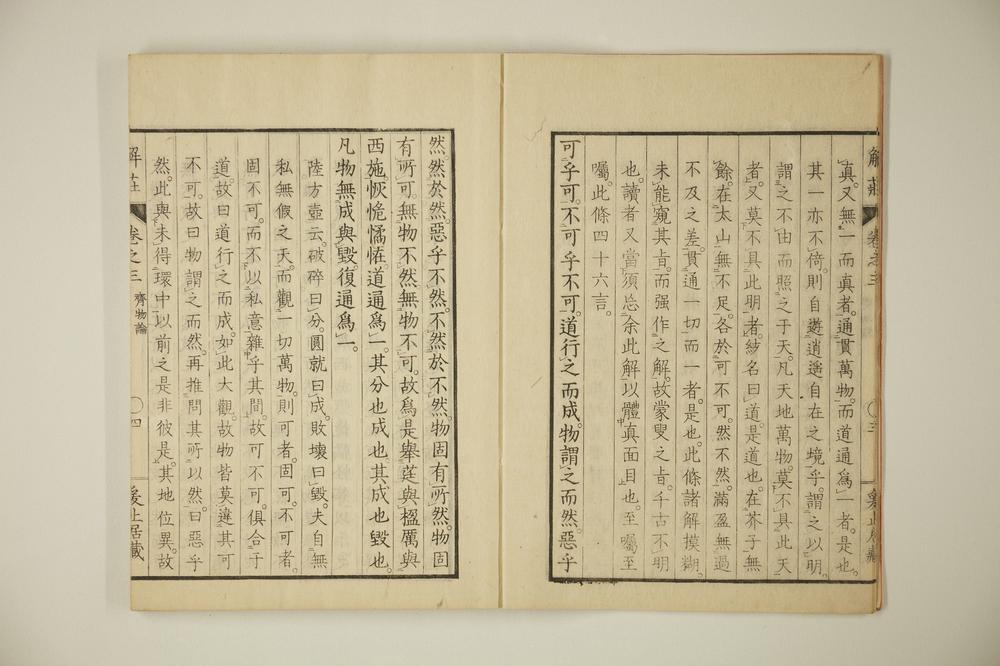 解莊 卷之三 〇三
真。又無一而真者。通貫萬物。而道通爲一者。是也。
其一亦不倚。則自遊逍遥自在之境乎。謂之以明。
謂之不由而照之于天。凡天地萬物。莫不具此天
者。又莫不具此明者。結名曰道。是道也。在芥子無
餘。在太山無不足。各於可不可。然不然。滿盈無過
不及之差。貫通一切而一者。是也。此條諸解摸糊。
未能窺其旨。而强作之解。故蒙叟之旨。千古不明
也。讀者又當須忩余此解以體真面目也。至囑至
囑。此條四十六言。
可乎可。不可乎不可。道行之而成。物謂之而然。惡乎
然。然於然。惡乎不然。不然於不然。物固有所然。物固
有所可。無物不然。無物不可。故爲是舉莛與楹。厲與
西施。恢恑憰恠。道通爲一。其分也成也。其成也毀也。
凡物無成與毀。復通爲一。
陸方壺云。破碎曰分。圓就曰成。敗壞曰毀。夫自無
私無假之天。而觀一切萬物。則可者。固可。不可者。
固不可。而不以私意雜乎其間。故可不可。俱合于
道。故曰道行之而成。如此大觀。故物皆莫違其可
不可。故曰物謂之而然。再推問其所以然。曰惡乎
然。此與未得環中以前之是非彼是。其地位異。故
解莊 卷之三 齊物論 〇四 爰止居藏